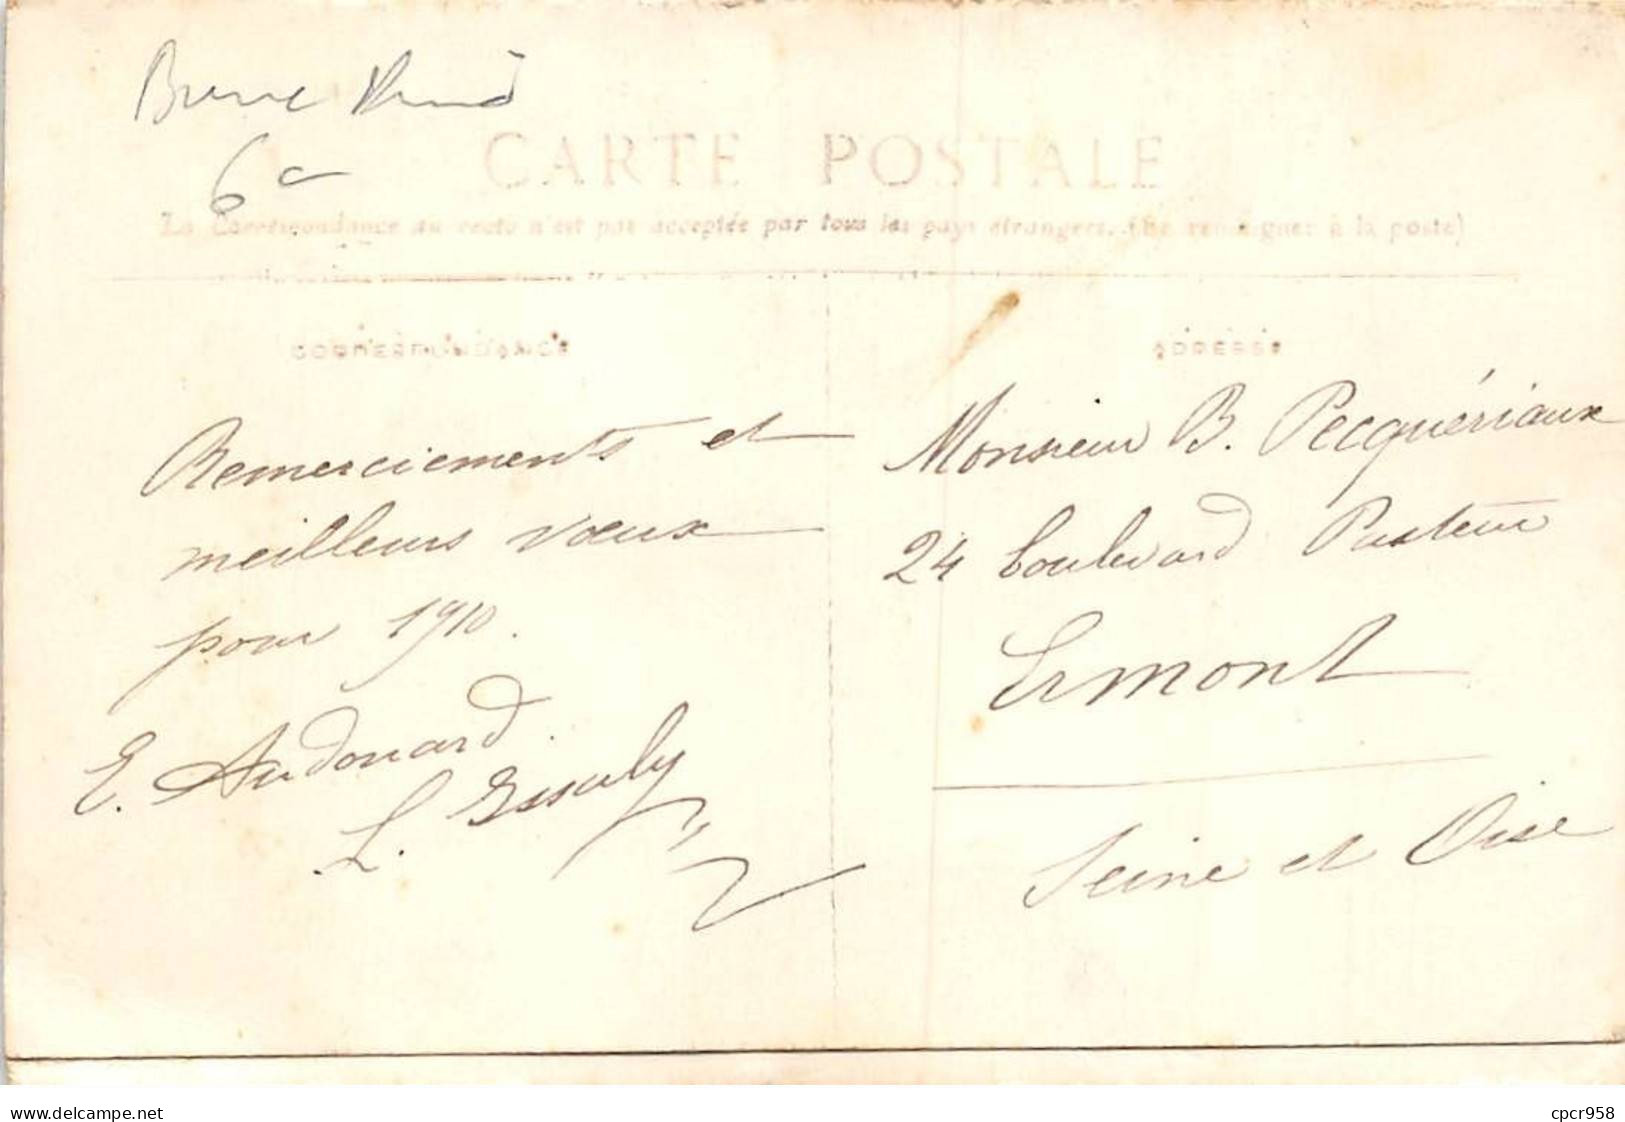 CARTE POSTALE
La Correspondance au recto n'est pas acceptée par tous les pays étrangers. (Se renseigner à la poste)
CORRESPONDANCE
ADRESSE
Remerciements et
meilleurs vœux
pour 1910.
E. Audouard.
L.
Monsieur B. Pecquériaux
24 boulevard Pasteur
Ermont
Seine et Oise
www.delcampe.net
cpcr958